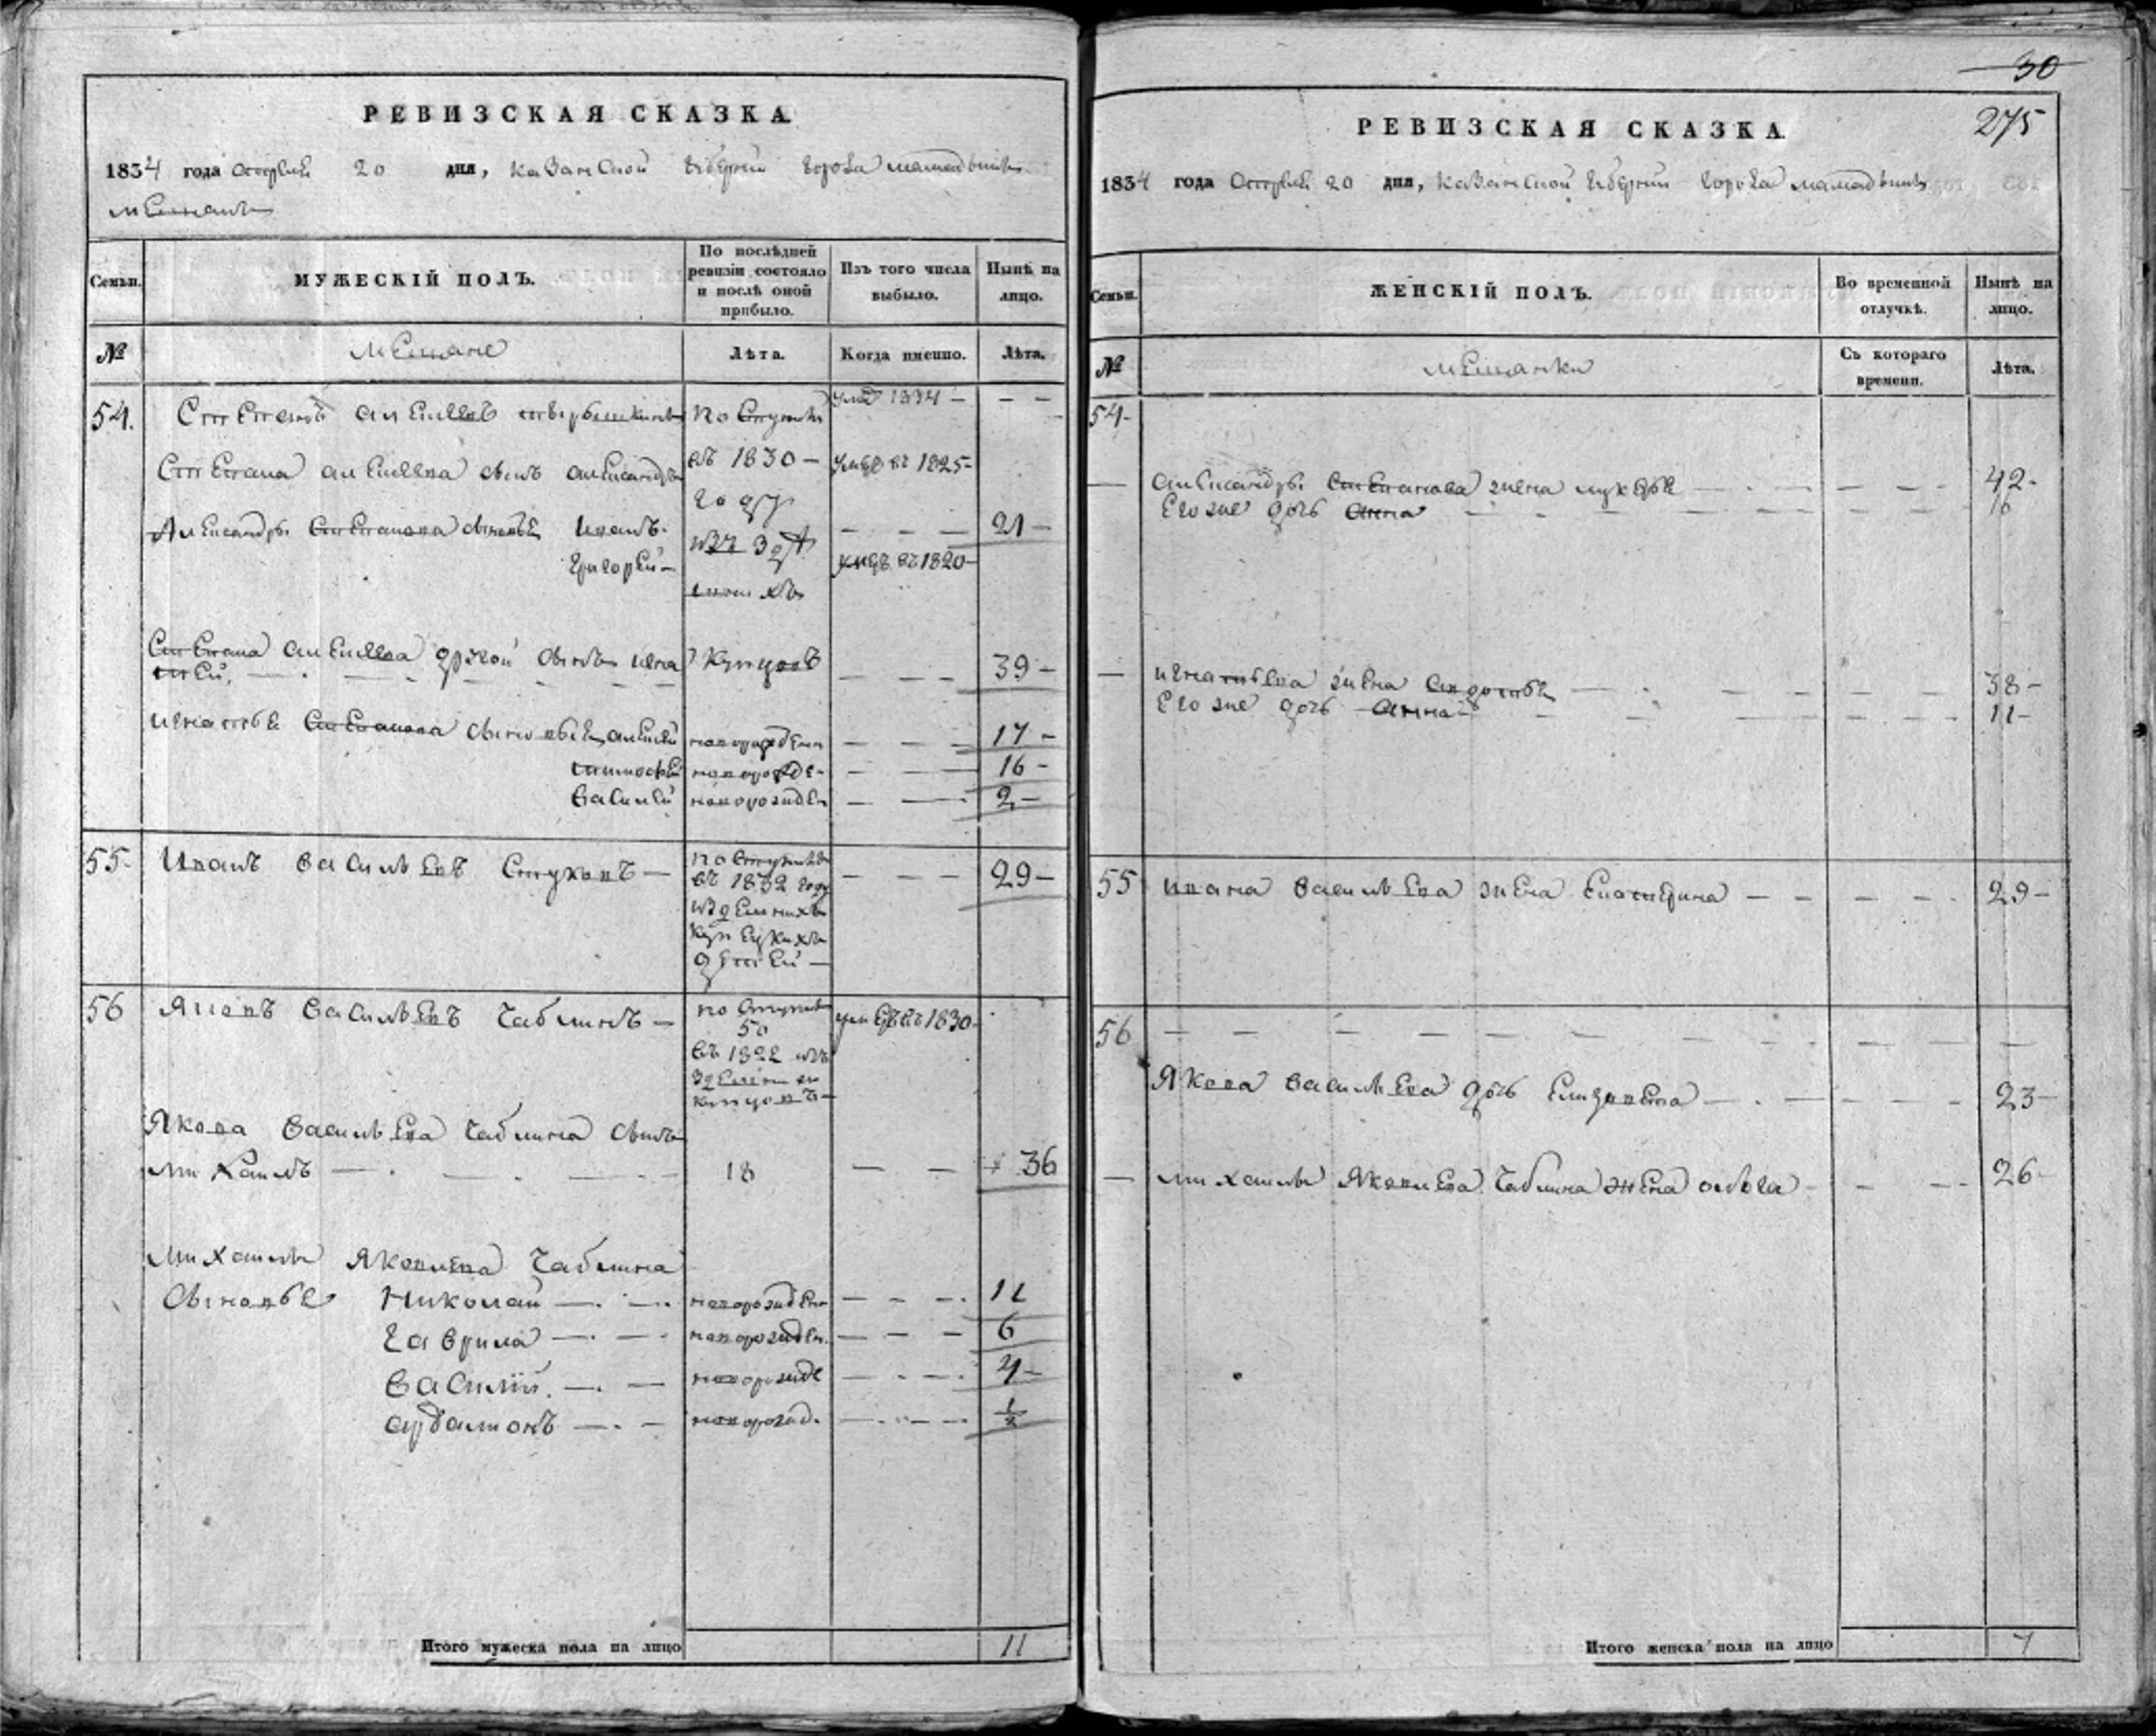 РЕВИЗСКАЯ СКАЗКА
1834 года Октября 20 дня, Казанской губернии города Мамадыша
мещанъ
Семьи. МУЖЕСКІЙ ПОЛЪ. По послѣдней ревизіи состояло и послѣ оной прибыло. Изъ того числа выбыло. Нынѣ на лицо.
№ мещане Лѣта. Когда именно. Лѣта.
54. Степанъ Алексѣевъ по ступилъ 1834 – – –
Степана Алексѣева сынъ Александръ въ 1830 – умеръ въ 1825 –
году
Александры Степанова сыновье Иванъ. – – – 21 –
Григорей – умеръ въ 1820 –
Степана Алексѣева другой сынъ Игна купцовъ – – – 39 –
тей.
Игнатья Степанова сыновье Алексей новорожден – – – 17 –
тимофей новорожде – – – 16 –
Василей новорожден – – – 2 –
55 Иванъ Васильевъ Стуковъ – по ступилъ – – – 29 –
въ 1832 году
из здешнихъ
купецкихъ
детей –
56 Яковъ Васильевъ Чаблинъ – по ступилъ умеръ въ 1830
50
въ 1822 изъ
купцовъ –
Якова Васильева Чаблина сынъ
Михаилъ – 18 – – 36
Михаилы Яковлева Чаблина
сыновье Николай – новорожден – – – 11
Гаврила – новорожден. – – – 6
Василій. – новорожде – – – 4 –
– новорожд. – – – 1/2
Итого мужеска пола на лицо 11
30
275
РЕВИЗСКАЯ СКАЗКА.
1834 года Октября 20 дня, Казанской губернии города Мамадыша
Семьи. ЖЕНСКІЙ ПОЛЪ. Во временной отлучкѣ. Нынѣ на лицо.
№ мещанки Съ котораго времени. Лѣта.
54.
– Александры Степанова жена – – – 42 –
Его же дочь Анна – – – 16
– Игнатьева жена Авдотья – – – 38 –
Его же дочь Анна – – – 11 –
55 Ивана Васильева жена Екатерина – – – 29 –
56 – – – –
Якова Васильева дочь Елизавета – – – 23 –
– Михаилы Яковлева Чаблина жена Ольга – – – 26 –
Итого женска пола на лицо 7